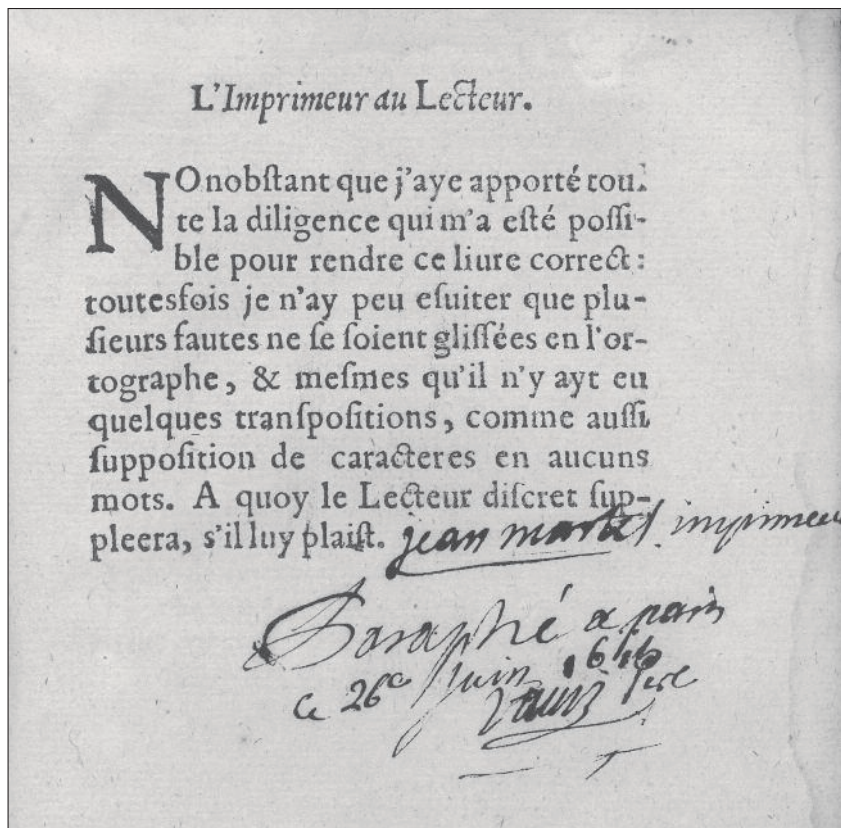 L'Imprimeur au Lecteur.
NOnobſtant que j'aye apporté tou-
te la diligence qui m'a eſté poſſi-
ble pour rendre ce liure correct :
toutesfois je n'ay peu eſuiter que plu-
ſieurs fautes ne ſe ſoient gliſſées en l'or-
tographe, & meſmes qu'il n'y ayt eu
quelques tranſpoſitions, comme auſſi
ſuppoſition de caracteres en aucuns
mots. A quoy le Lecteur diſcret ſup-
pleera, s'il luy plaiſt. jean martel imprimeur
Paraphé a paris
ce 26e Juin